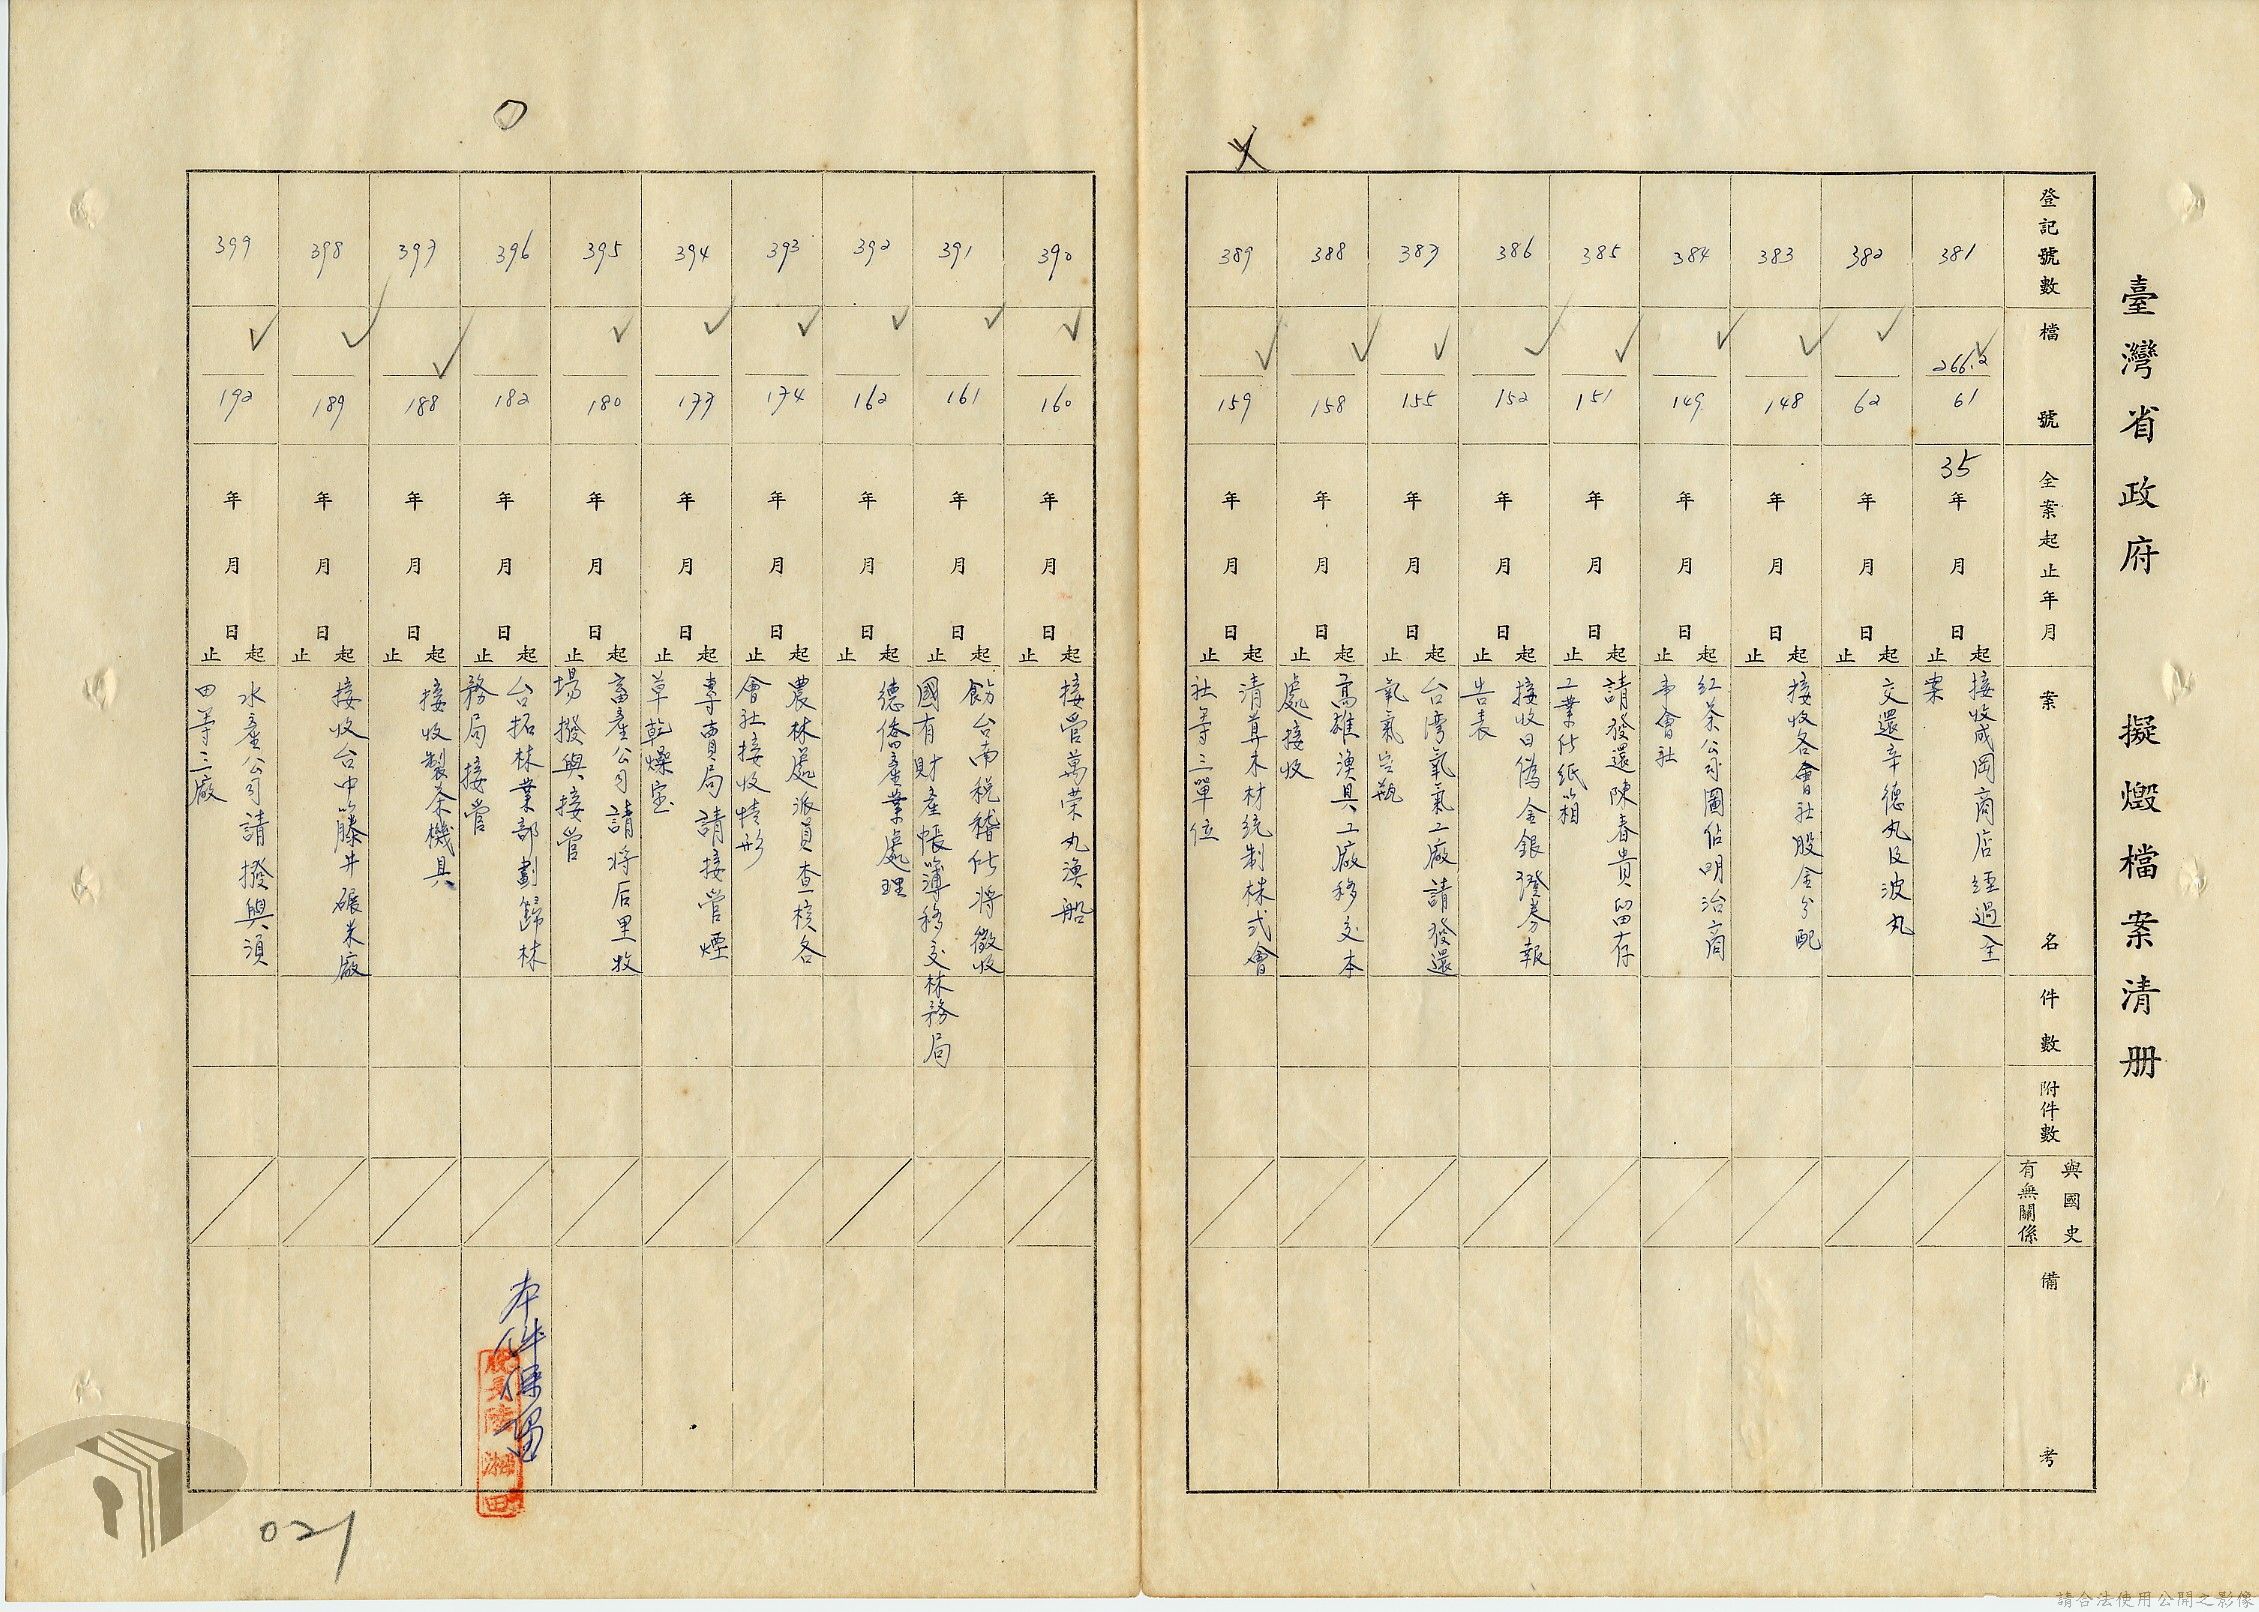 臺灣省政府 擬燬檔案清册
登記號數
檔號
全案起止年月
案名
件數
附件數
與國史
有無關係
備考
381
266.2
61
35年月日起止
接收成岡商店經過全
案
382
62
年月日起止
交還辛德丸及波丸
383
148
年月日起止
接收各會社股金分配
384
149
年月日起止
紅茶公司圖佔明治商
事會社
385
151
年月日起止
請發還陳春貴留存
工業所紙箱
386
152
年月日起止
接收日偽金銀證券報
告表
387
155
年月日起止
台湾氧氣工廠請發還
氧氣空瓶
388
158
年月日起止
高雄漁具工廠移交本
處接收
389
159
年月日起止
清算木材統制株式會
社等三單位
390
160
年月日起止
接管萬荣丸漁船
391
161
年月日起止
飭台南稅稽所將徵收
國有財產帳簿移交林務局
392
162
年月日起止
德僑產業處理
393
174
年月日起止
農林處派員查核各
會社接收情形
394
177
年月日起止
專賣局請接管煙
草乾燥室
395
180
年月日起止
畜產公司請將后里牧
場撥與接管
396
182
年月日起止
台拓林業部劃歸林
務局接管
本件保留
股長陸湘田
397
188
年月日起止
接收製茶機具
398
189
年月日起止
接收台中籐井碾米廠
399
192
年月日起止
水產公司請撥與須
田等三廠
021
請合法使用公開之影像